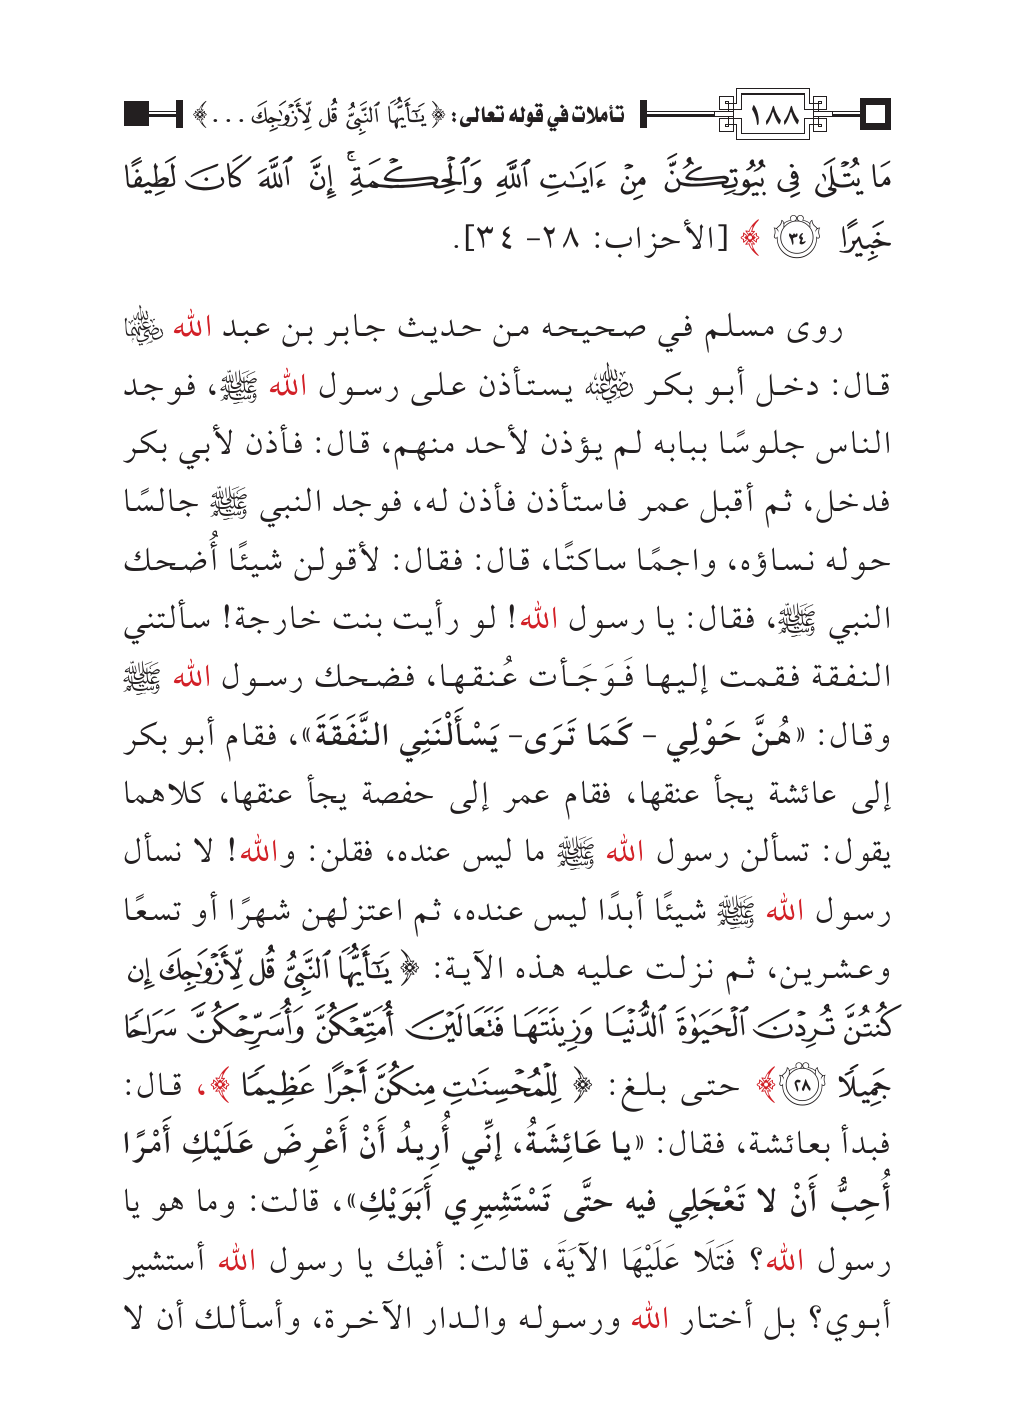 ١٨٨ تأملات في قوله تعالى: ﴿ يَٰٓأَيُّهَا ٱلنَّبِيُّ قُل لِّأَزْوَٰجِكَ ... ﴾
مَا يُتْلَىٰ فِى بُيُوتِكُنَّ مِنْ ءَايَٰتِ ٱللَّهِ وَٱلْحِكْمَةِ ۚ إِنَّ ٱللَّهَ كَانَ لَطِيفًا
خَبِيرًا ٣٤ ﴾ [الأحزاب: ٢٨- ٣٤].
روى مسلم في صحيحه من حديث جابر بن عبد الله رضي الله عنهما
قال: دخل أبو بكر رضي الله عنه يستأذن على رسول الله ﷺ، فوجد
الناس جلوسًا ببابه لم يؤذن لأحد منهم، قال: فأذن لأبي بكر
فدخل، ثم أقبل عمر فاستأذن فأذن له، فوجد النبي ﷺ جالسًا
حوله نساؤه، واجمًا ساكتًا، قال: فقال: لأقولن شيئًا أُضحك
النبي ﷺ، فقال: يا رسول الله! لو رأيت بنت خارجة! سألتني
النفقة فقمت إليها فَوَجَأت عُنقها، فضحك رسول الله ﷺ
وقال: «هُنَّ حَوْلِي - كَمَا تَرَى- يَسْأَلْنَنِي النَّفَقَةَ»، فقام أبو بكر
إلى عائشة يجأ عنقها، فقام عمر إلى حفصة يجأ عنقها، كلاهما
يقول: تسألن رسول الله ﷺ ما ليس عنده، فقلن: والله! لا نسأل
رسول الله ﷺ شيئًا أبدًا ليس عنده، ثم اعتزلهن شهرًا أو تسعًا
وعشرين، ثم نزلت عليه هذه الآية: ﴿ يَٰٓأَيُّهَا ٱلنَّبِيُّ قُل لِّأَزْوَٰجِكَ إِن
كُنتُنَّ تُرِدْنَ ٱلْحَيَوٰةَ ٱلدُّنْيَا وَزِينَتَهَا فَتَعَالَيْنَ أُمَتِّعْكُنَّ وَأُسَرِّحْكُنَّ سَرَاحًا
جَمِيلًا ٢٨﴾ حتى بلغ: ﴿ لِلْمُحْسِنَٰتِ مِنكُنَّ أَجْرًا عَظِيمًا ﴾، قال:
فبدأ بعائشة، فقال: «يا عَائِشَةُ، إنِّي أُرِيدُ أَنْ أَعْرِضَ عَلَيْكِ أَمْرًا
أُحِبُّ أَنْ لا تَعْجَلِي فيه حتَّى تَسْتَشِيرِي أَبَوَيْكِ»، قالت: وما هو يا
رسول الله؟ فَتَلَا عَلَيْهَا الآيَةَ، قالت: أفيك يا رسول الله أستشير
أبوي؟ بل أختار الله ورسوله والدار الآخرة، وأسألك أن لا